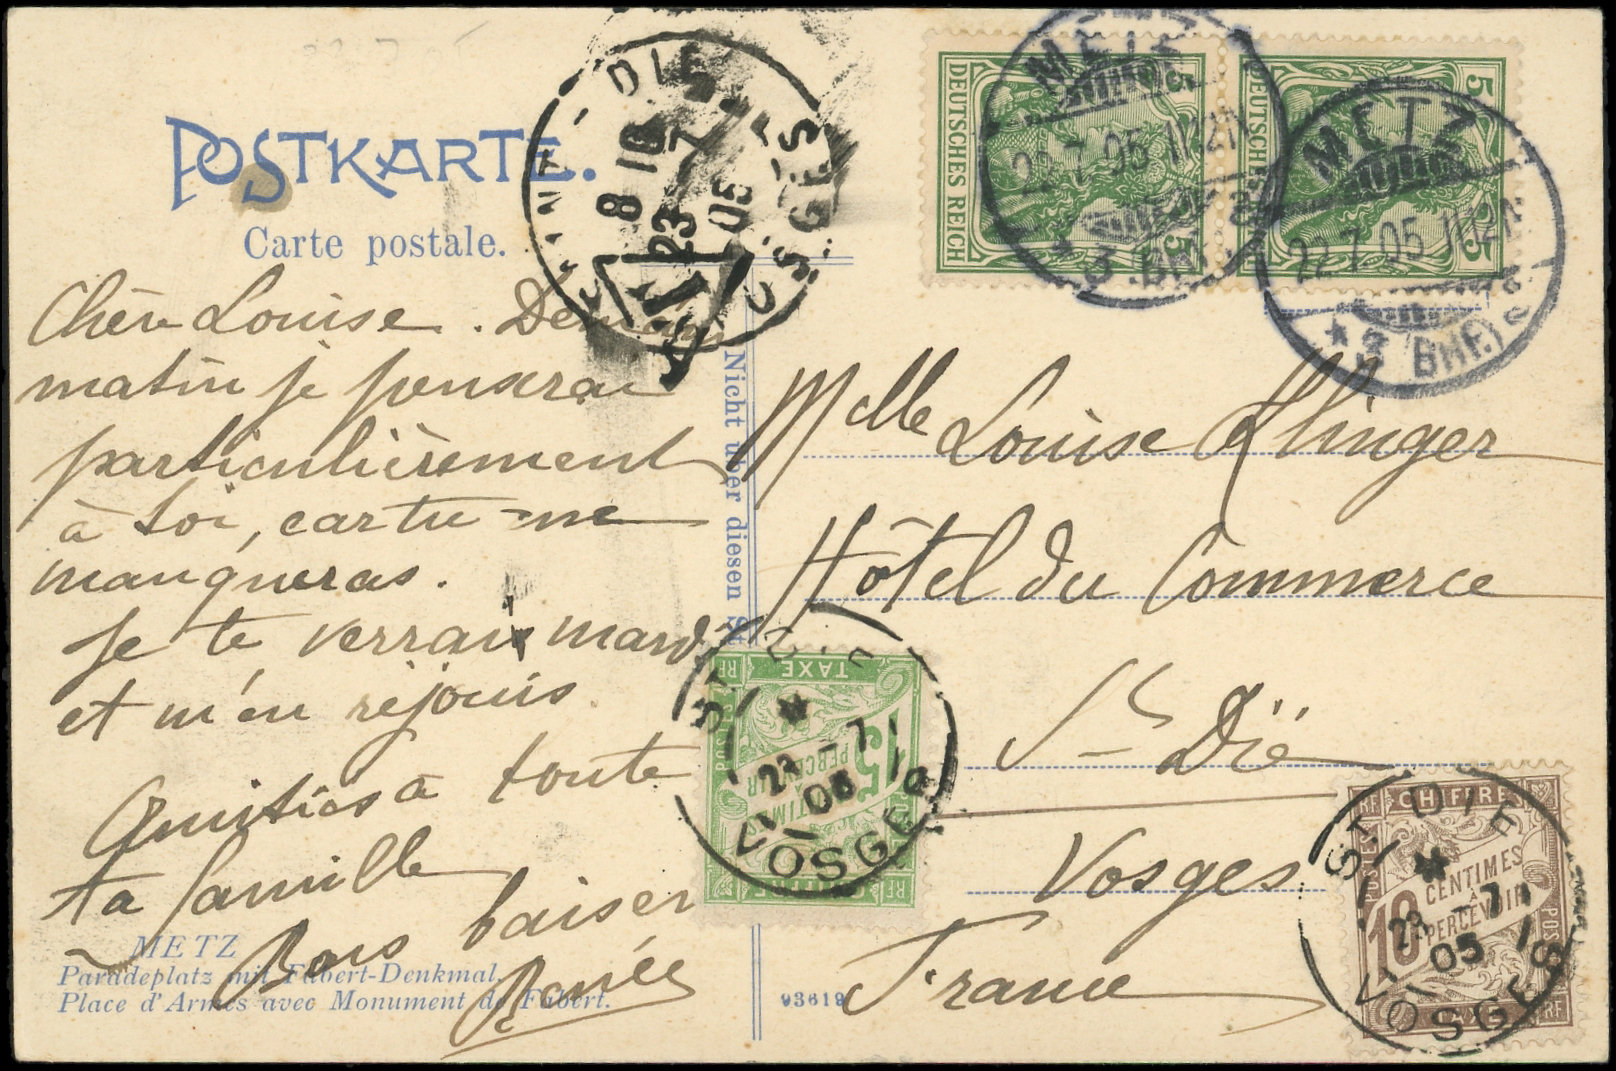 POSTKARTE.
Carte postale.
Chère Louise. Demain
matin je penserai
particulièrement
à toi, car tu me
manqueras.
Je te verrai mardi
et m'en réjouis
Amitiés à toute
ta famille
Bons baisers
Renée
METZ
Paradeplatz mit Fabert-Denkmal.
Place d'Armes avec Monument de Fabert.
Nicht über diesen St
93619
Melle Louise Klinger
Hôtel du Commerce
St Dié
Vosges
France
DEUTSCHES REICH
5 5
DEUTSCHES REICH
5 5
METZ
22.7.05
METZ
22.7.05
(BHF.)
ST DIE
8 10
23 7
05
VOSGES
TAXE
5
CENTIMES
À
PERCEVOIR
CHIFFRE
POSTES
RF
ST DIE
23 7
05
VOSGES
RF CHIFFRE
POSTES
10
CENTIMES
À
PERCEVOIR
TAXE
RF
ST DIE
23 7
05
VOSGES